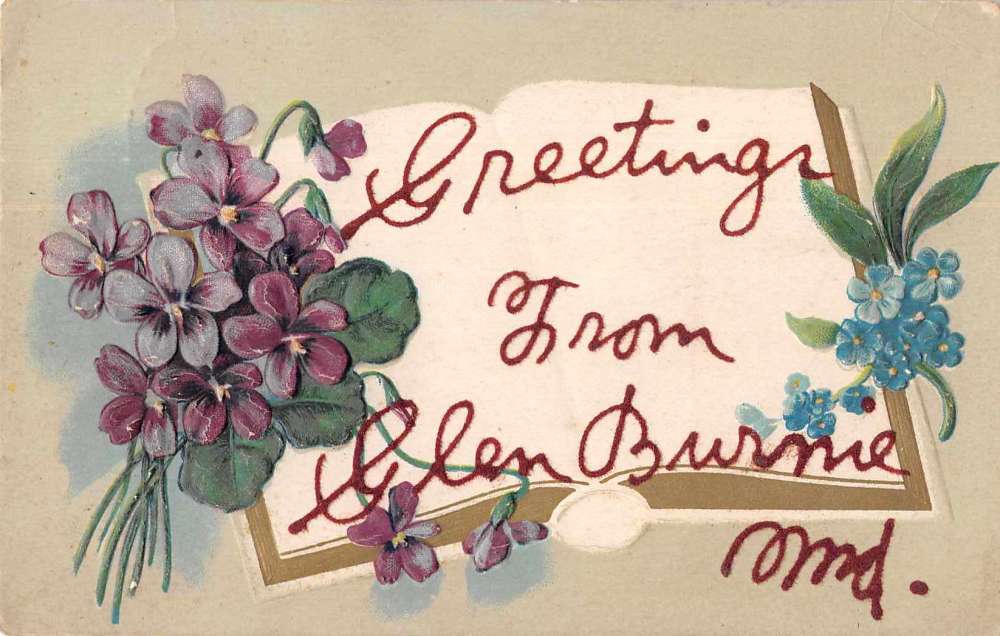 Greetings
From
Glen Burnie
Md.